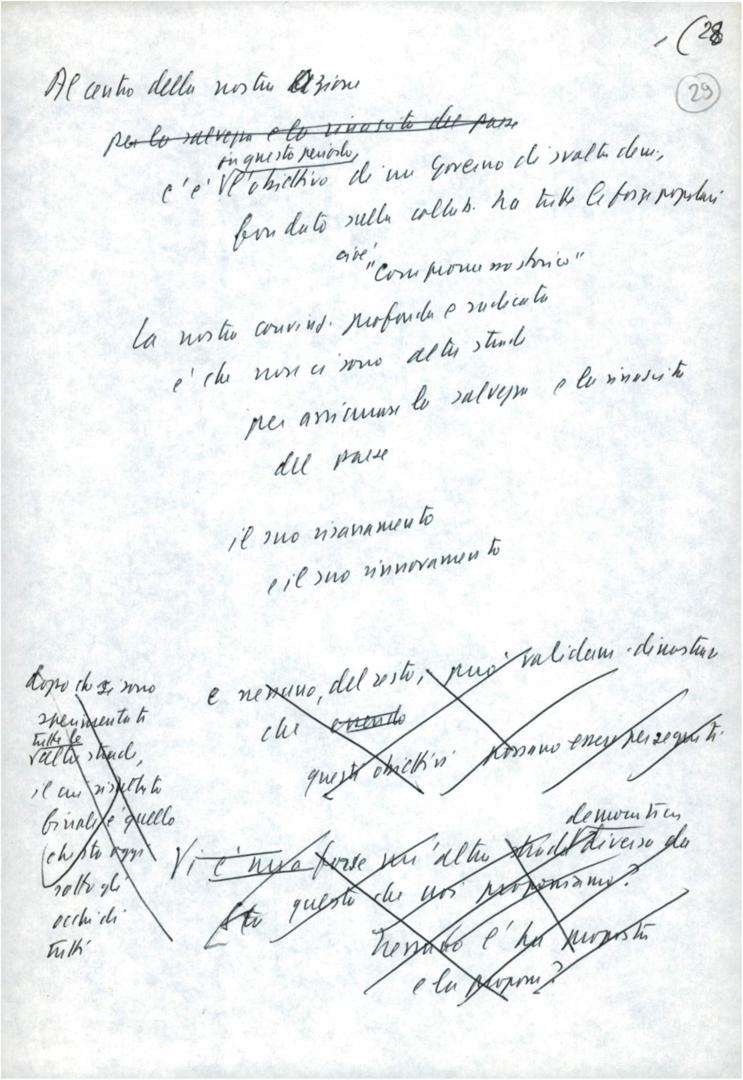 (28
29
Al centro della nostra Azione
per la salvezza e la rinascita del paese
in questo periodo,
c'è l'obiettivo di un Governo di svolta dem.,
fondato sulla collab. tra tutte le forze popolari
cioè
"Compromesso storico"
La nostra convinz. profonda e radicata
è che non ci sono altre strade
per assicurare la salvezza e la rinascita
del paese
il suo risanamento
e il suo rinnovamento
e nessuno, del resto, può validam. dimostrare
che essendo
questi obiettivi possano essere perseguiti.
dopo che si sono
sperimentate
tutte le
altre strade,
il cui risultato
finale è quello
che sta oggi
sotto gli
occhi di
tutti
democratica
Vi è forse un'altra strada diversa da
questa che noi proponiamo?
Nessuno l'ha proposta
e la propone?